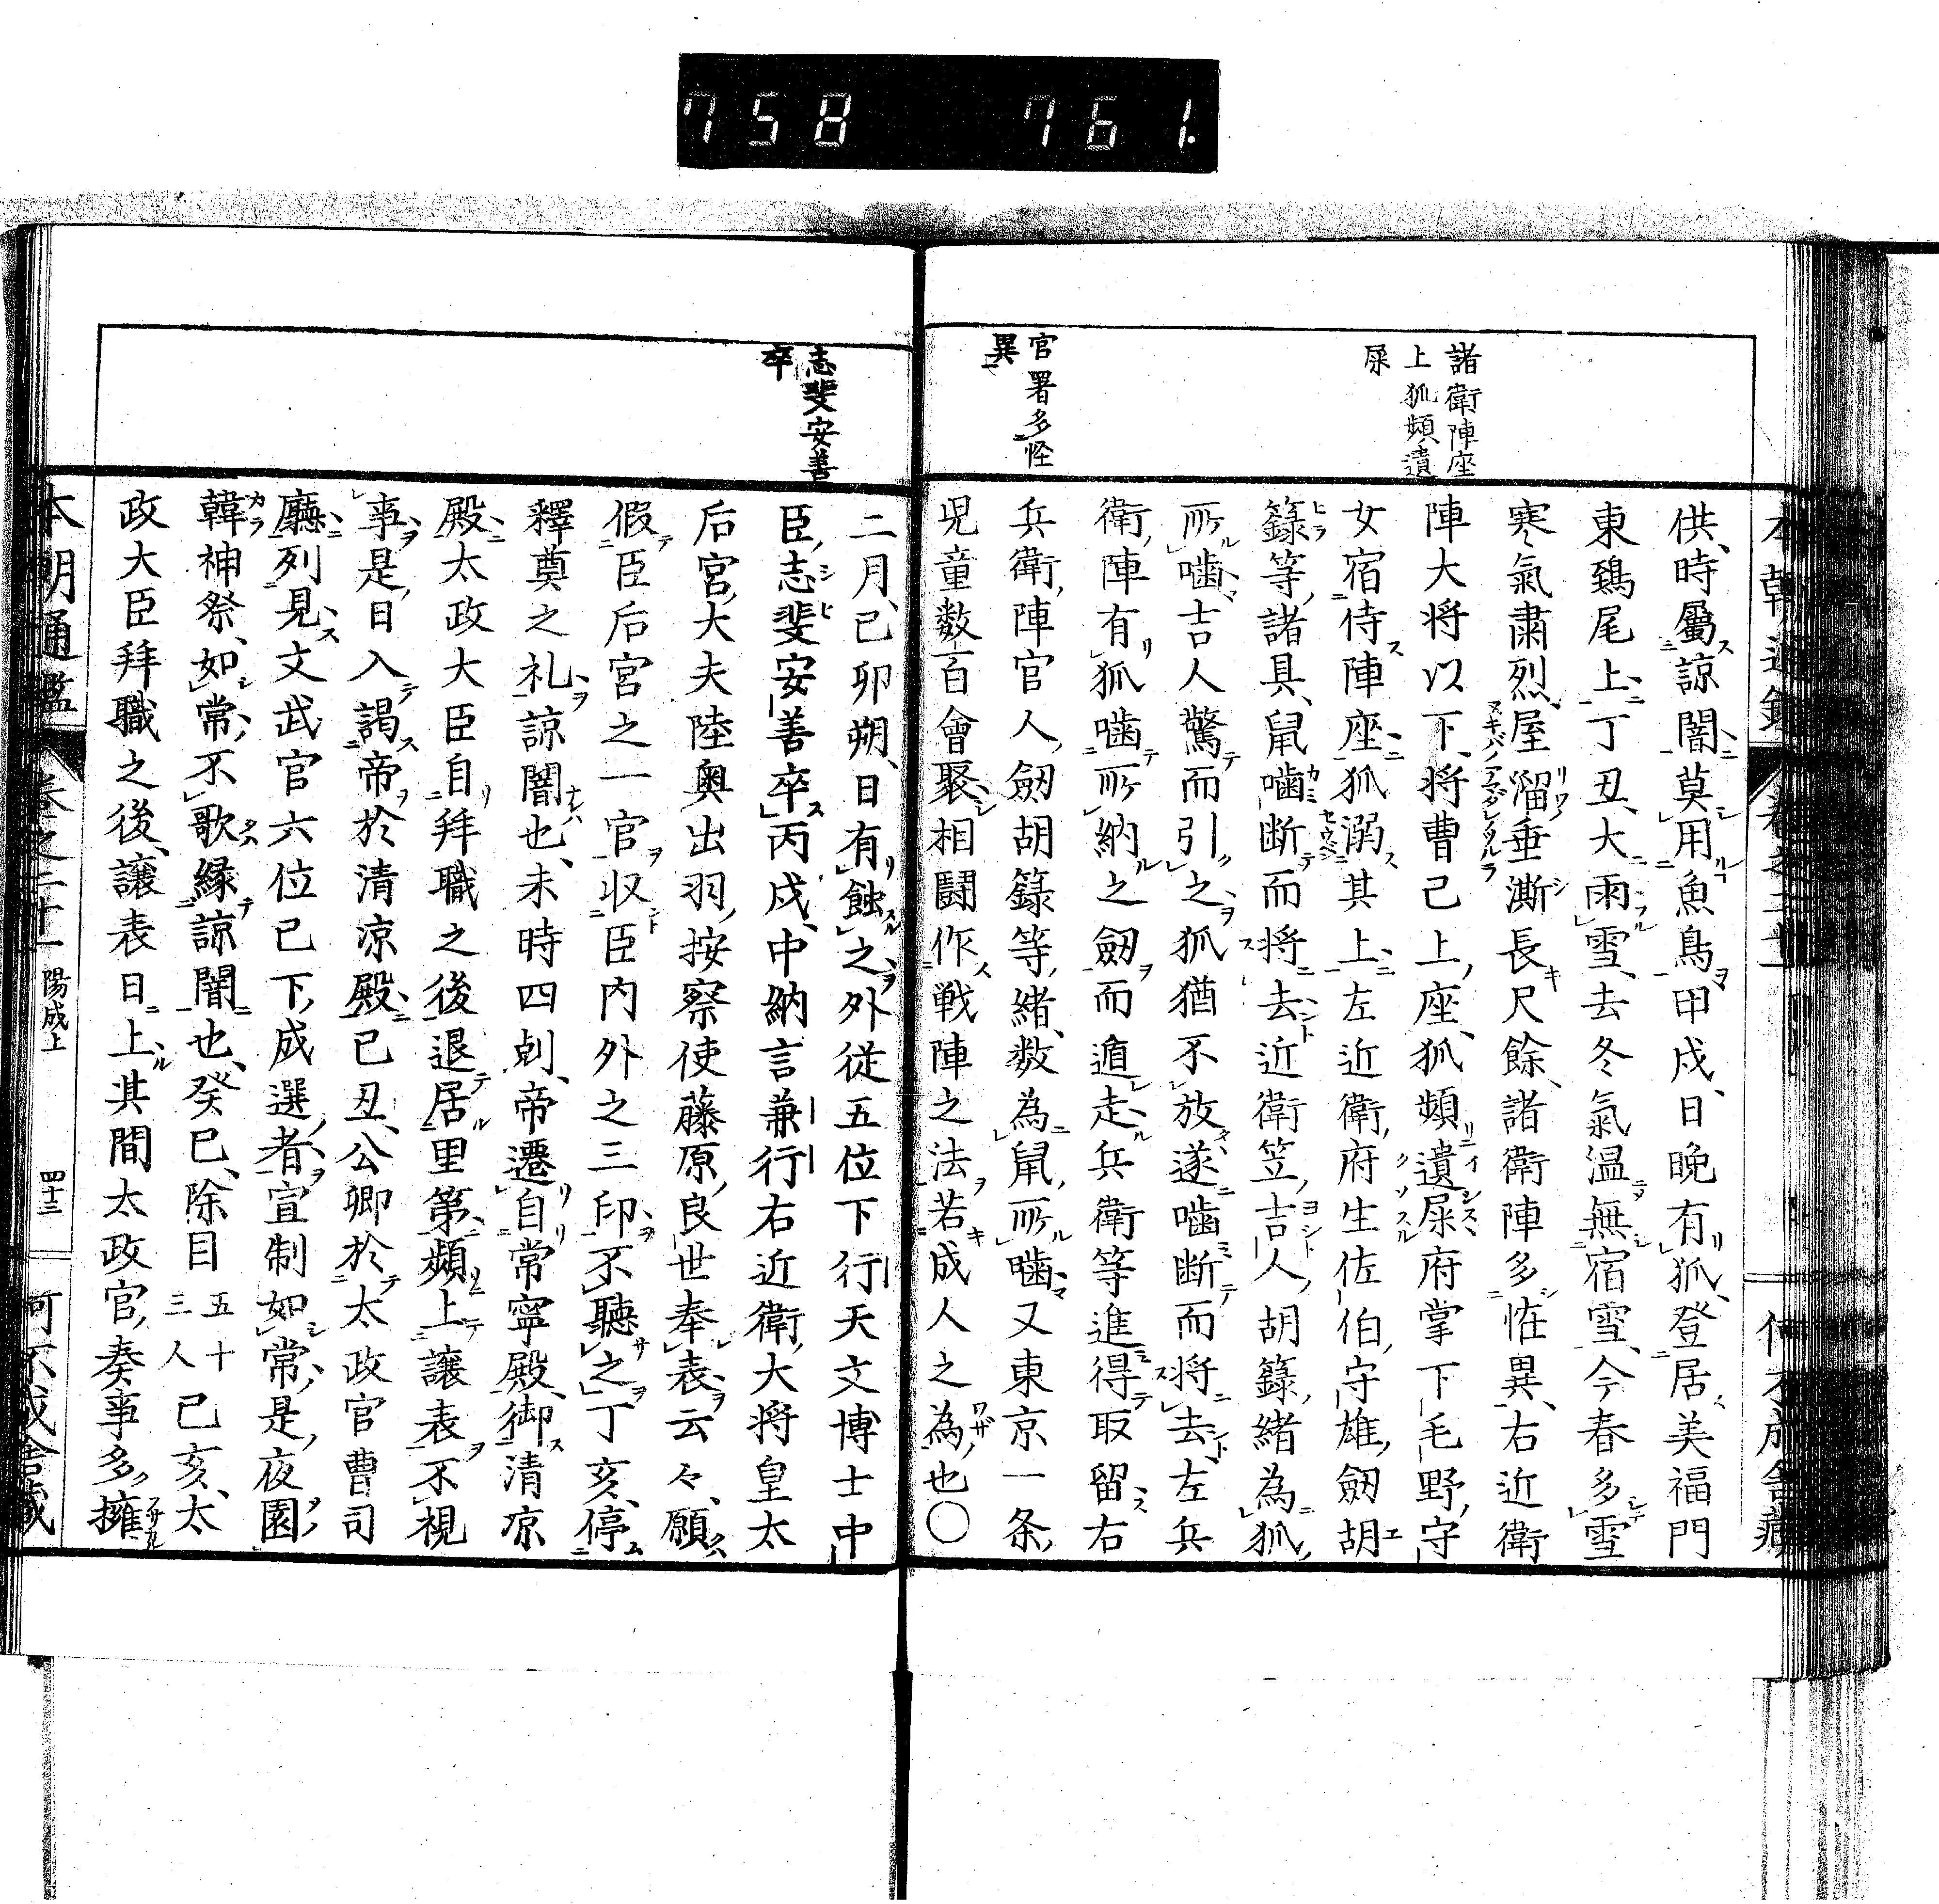 758 761.
諸衛陣座
上狐頻遺
屎
官署多怪
異
供時屬諒闇莫用魚鳥甲戌日晚有狐登居美福門
東鵄尾上丁丑大雨雪去冬氣温無宿雪今春多雪
寒氣肅烈屋溜垂澌長尺餘諸衛陣多恠異右近衛
陣大将以下将曹已上座狐頻遺屎府掌下毛野守
女宿侍陣座狐溺其上左近衛府生佐伯守雄劔胡
籙等諸具鼠噛断而将去近衛笠吉人胡籙緒為狐
所噛吉人驚而引之狐猶不放遂噛断而将去左兵
衛陣有狐噛所納之劔而遁走兵衛等進得取留右
兵衛陣官人劔胡籙等緒数為鼠所噛又東京一条
児童数百會聚相闘作戦陣之法若成人之為也〇
志斐安善
卒
二月己卯朔日有蝕之外從五位下行天文博士中
臣志斐安善卒丙戌中納言兼行右近衛大将皇太
后宮大夫陸奥出羽按察使藤原良世奉表云々願
假臣后宮之一官収臣内外之三印不聽之丁亥停
釋奠之礼諒闇也未時四剋帝遷自常寧殿御清凉
殿太政大臣自拜職之後退居里第頻上讓表不視
事是日入謁帝於清凉殿己丑公卿於太政官曹司
廳列見文武官六位已下成選者宣制如常是夜園
韓神祭如常不歌縁諒闇也癸巳除目五十三人己亥太
政大臣拜職之後讓表日上其間太政官奏事多擁
本朝通鑑 卷之二十一 陽成上 四十三